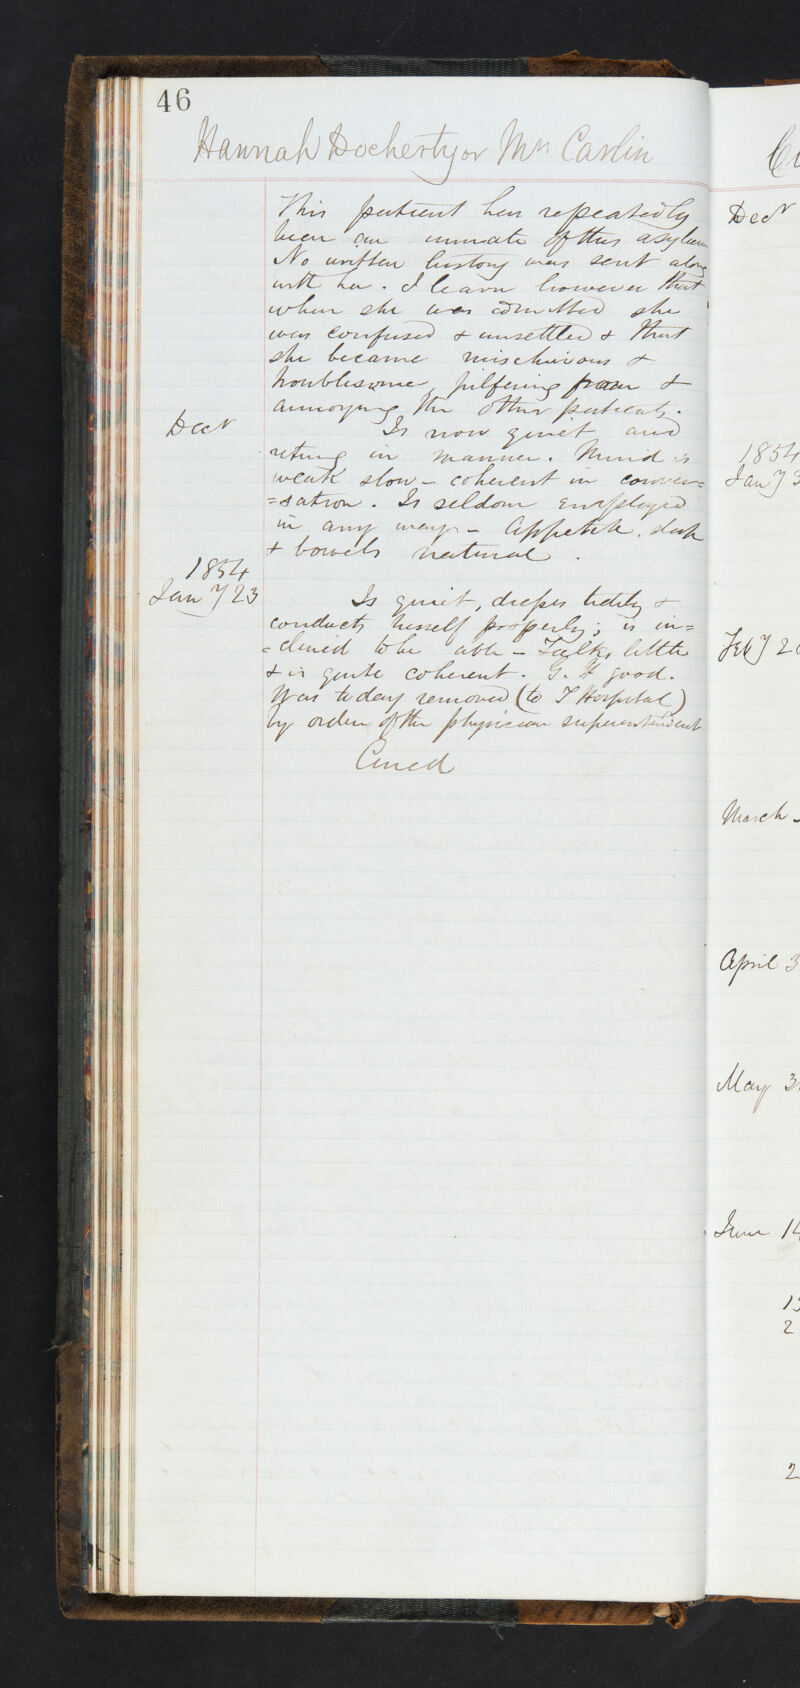 46
Hannah Docherty or Mrs Carlin
This patient has repeatedly
been an inmate of this asylum
No written history was sent along
with her. I learn however that
when she was admitted she
was confused & unsettled & that
she became mischievous &
troublesome, pilfering from &
annoying the other patients.
Decr
Is now quiet and
retiring in manner. Mind is
weak slow - coherent in conver=
=sation. Is seldom employed
in any way - Appetite
& bowels natural.
1854
Jany 23
Is quiet, dresses tidily &
conducts herself properly; is in=
=clined to be - Talks little
& is quite coherent. G. H good.
Was to day removed (to T Hospital)
by order of the physician superintendent
Cured
Decr
1854
Jany 3
Feby 2
March
April 3
May 3
June 14
1
2
2